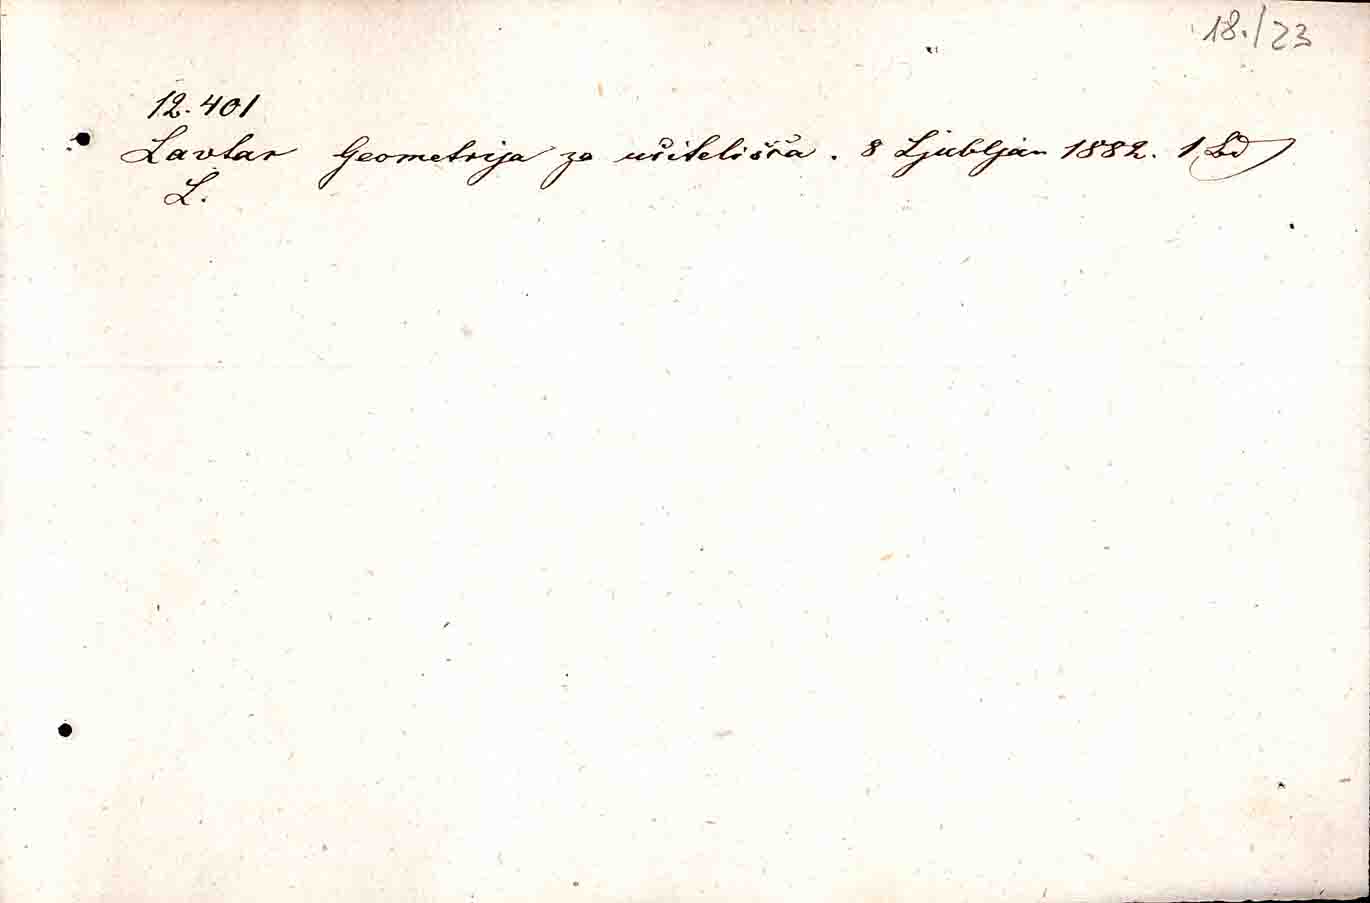 18./23
12.401
Lavtar Geometrija za učitelišča. 8 Ljubljan 1882. 1 Bd
L.